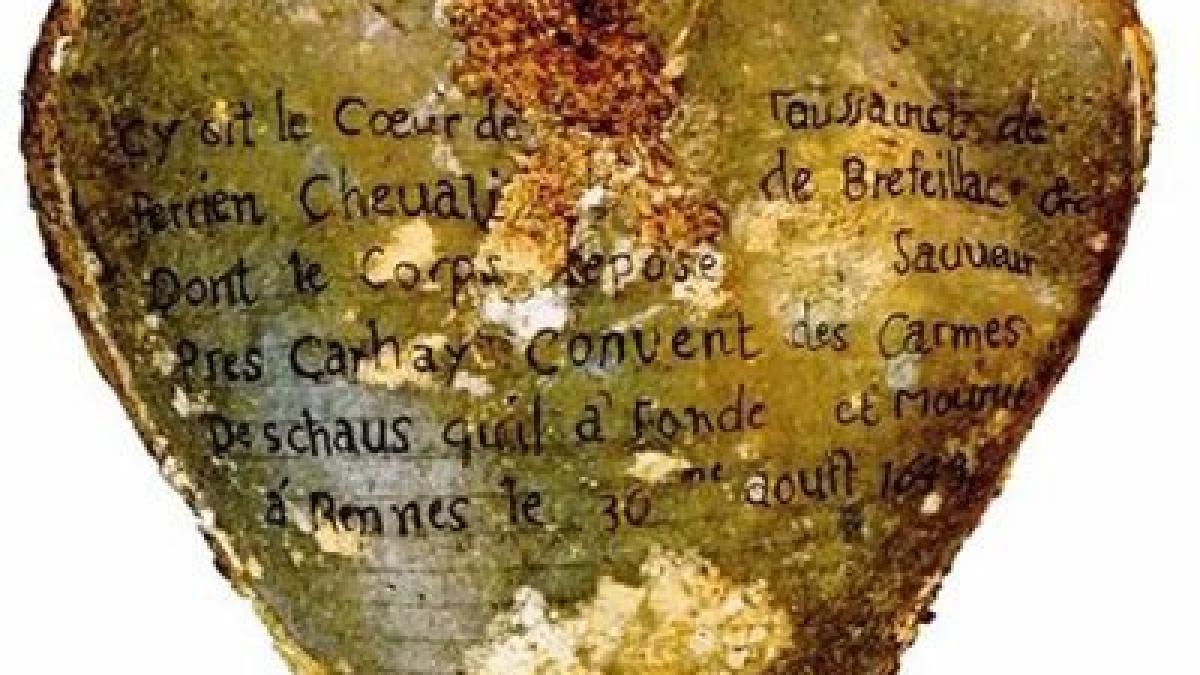 Cy Git le Cœur de Toussainct de
Perrien Cheuali de Brefeillac
Dont le Corps Repose Sauueur
Pres Carhay Convent des Carmes
Deschaus quil à Fonde et Mourut
á Rennes le 30me aouſt